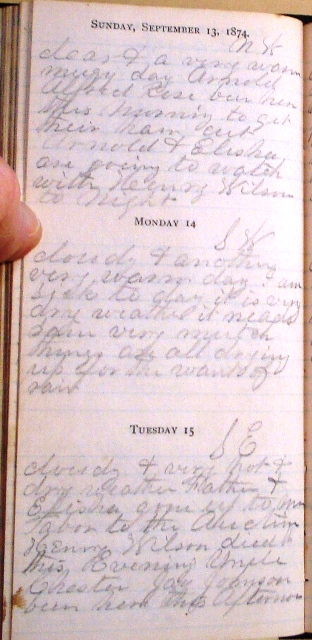 SUNDAY, SEPTEMBER 13, 1874.
N W
clear & a very warm
mugy day Arnold
Alfred Rose been here
this morning to get
their hair cut
Arnold & Elisha
are going to watch
with Henry Wilson
to Night
MONDAY 14
S W
cloudy & another
very warm day I am
sick to day it is very
dry weather it needs
rain very much
things are all drying
up for the wants of
rain
TUESDAY 15
S E
cloudy & very hot &
dry weather Father &
Elisha gone up to
Tabor to the Auction
Henry Wilson died
this Evening Uncle
Chester Jay Johnson
been here this Afternoon